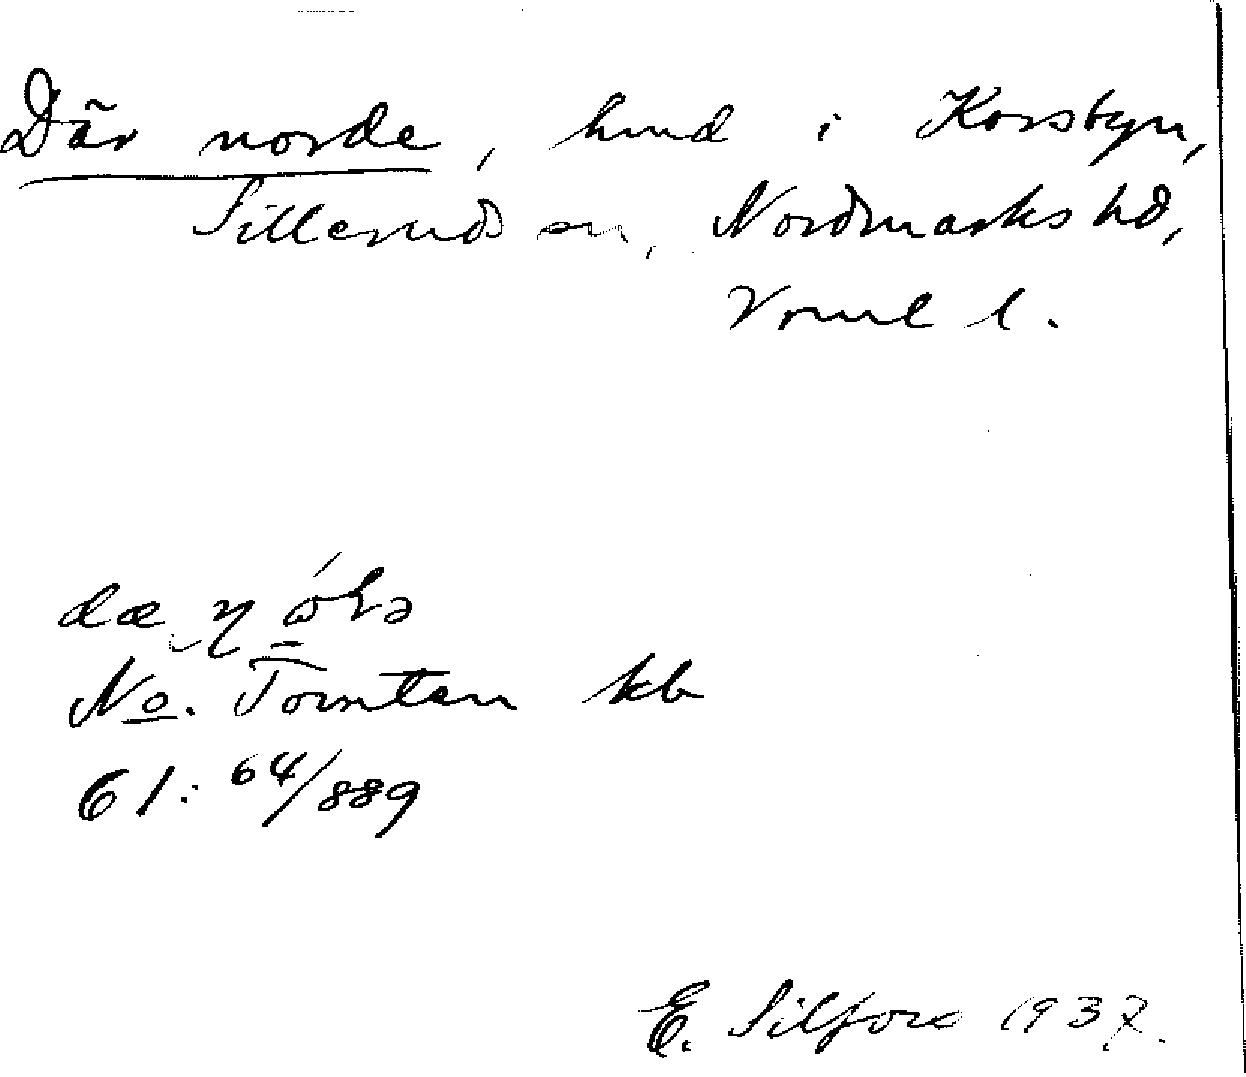 Där norde, hmd i Korsbyn,
Silleruds sn, Nordmarks hd,
Vrml l.
No. Tomten kb
61: 64/889
E. Silfors 1937.